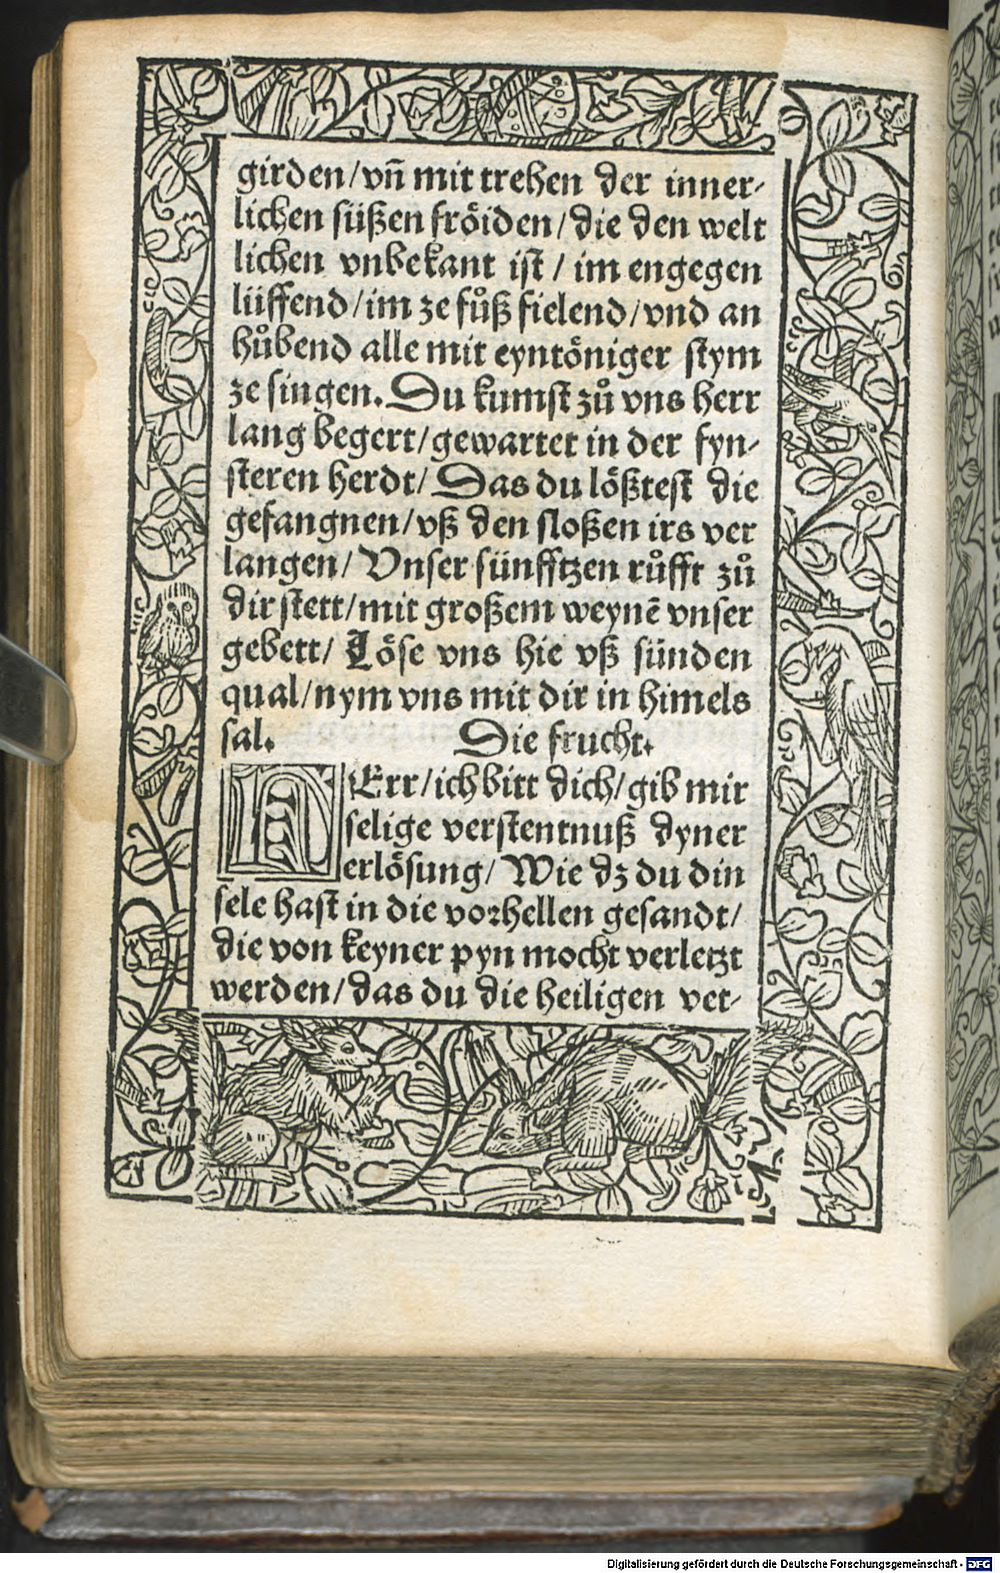 girden/vñ mit trehen der inner-
lichen süßen frôiden/die den welt
lichen vnbekant ist / im engegen
lüffend/im ze fůß fielend/vnd an
hůbend alle mit eyntôniger stym
ze singen. Du kumst zů vns herr
lang begert/gewartet in der fyn-
steren herdt/ Das du lôßtest die
gefangnen/vß den sloßen irs ver
langen/ Vnser sünfftzen růfft zů
dir stett/mit großem weynē vnser
gebett/ Lôse vns hie vß sünden
qual/nym vns mit dir in himels
sal. Die frucht.
HErr/ich bitt dich/gib mir
selige verstentnuß dyner
erlôsung/ Wie dz du din
sele hast in die vorhellen gesandt/
die von keyner pyn mocht verletzt
werden/das du die heiligen vet-
Digitalisierung gefördert durch die Deutsche Forschungsgemeinschaft - DFG